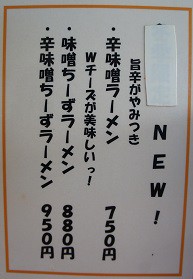 NEW!
旨辛がやみつき
・辛味噌ラーメン 750円
Wチーズが美味しいっ!
・味噌ちーずラーメン 880円
・辛味噌ちーずラーメン 950円